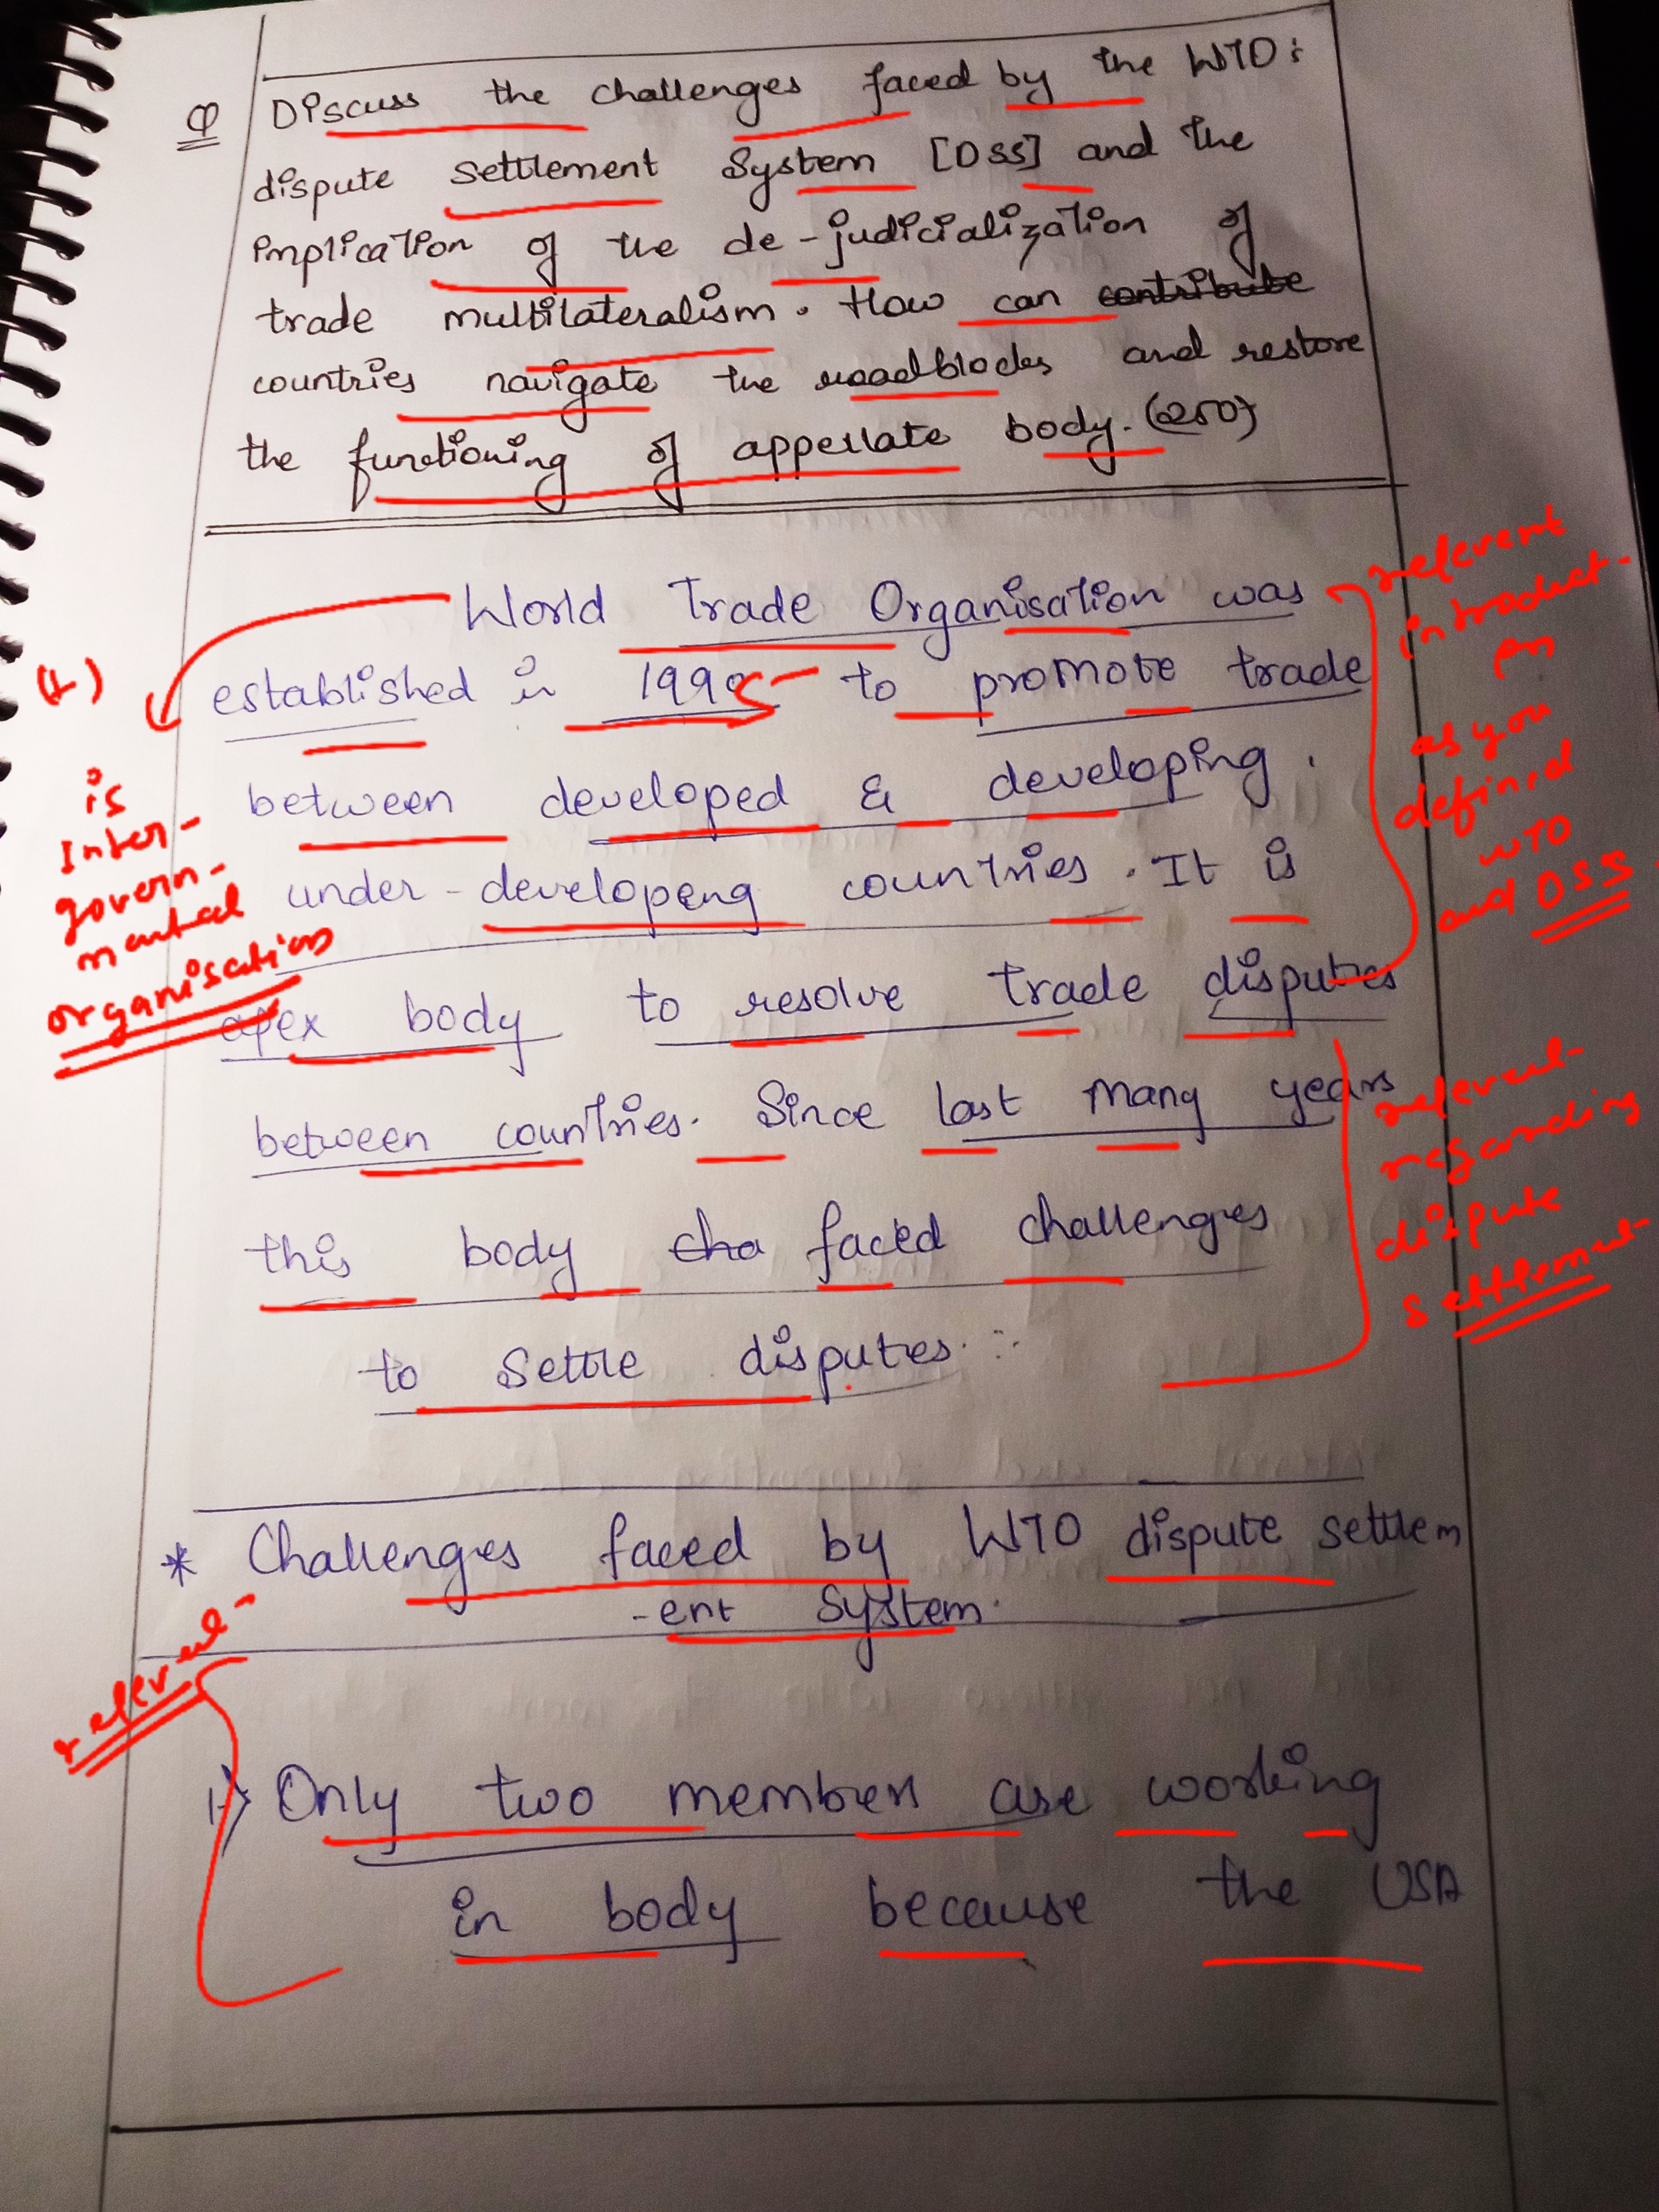 Q Discuss the challenges faced by the WTO:
dispute Settlement System [DSS] and the
implication of the de-judicialization of
trade multilateralism. How can contribute
countries navigate the roadblocks and restore
the functioning of appellate body. (250)
World Trade Organisation was
established in 1995 to promote trade
between developed & developing.
under-developing countries. It is
apex body to resolve trade disputes
between countries. Since last many years
this body cha faced challenges
to Settle disputes.
(+)
is
Inter-
govern-
mental
organisation
relevent
introduct-
on
as you
defined
WTO
and DSS.
relevent
regarding
dispute
settlement
* Challenges faced by WTO dispute settlem
-ent System.
relevent
1) Only two members are working
in body because the USA